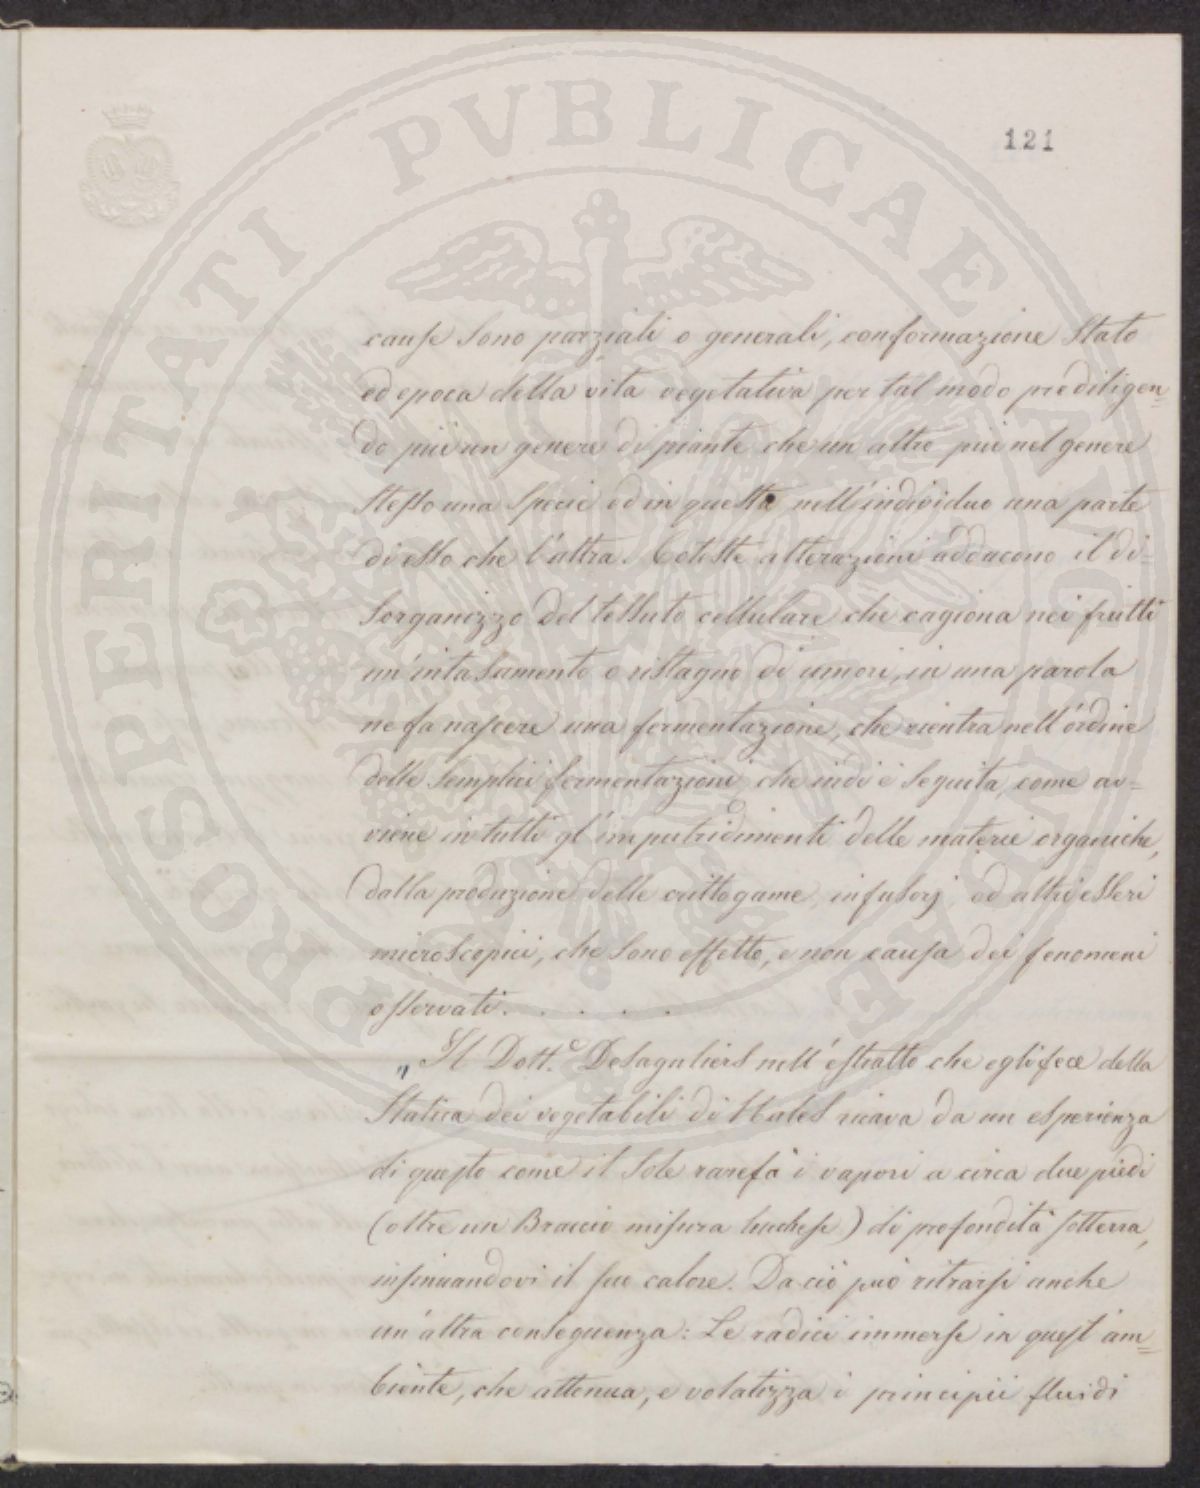 PROSPERITATI PVBLICAE AVGENDAE
121
cause sono parziali o generali, conformazione stato
ed epoca della vita vegetativa per tal modo prediligen=
do più un genere di piante che un altro più nel genere
stesso una specie ed in questa nell'individuo una parte
di esso che l'altra. Coteste alterazioni adducono il di=
sorganizzo del tessuto cellulare che cagiona nei frutti
un'intasamento o ristagno di umori, in una parola
ne fa nascere una fermentazione, che rientra nell'ordine
delle semplici fermentazioni che indi è seguita, come av=
viene in tutti gl'imputridimenti delle materie organiche,
dalla produzione delle crittogame, infusorj, ed altri esseri
microscopici, che sono effetto, e non causa dei fenomeni
osservati. . . . . .
„ Il Dott.e Desaguliers nell'estratto che egli fece della
Statica dei vegetabili di Hales ricava da un esperienza
di questo come il sole rarefà i vapori a circa due piedi
(oltre un Braccio misura lucchese) di profondità sotterra,
insinuandovi il suo calore. Da ciò può ritrarsi anche
un'altra conseguenza: Le radici immerse in quest'am=
biente, che attenua, e volatizza i principii fluidi